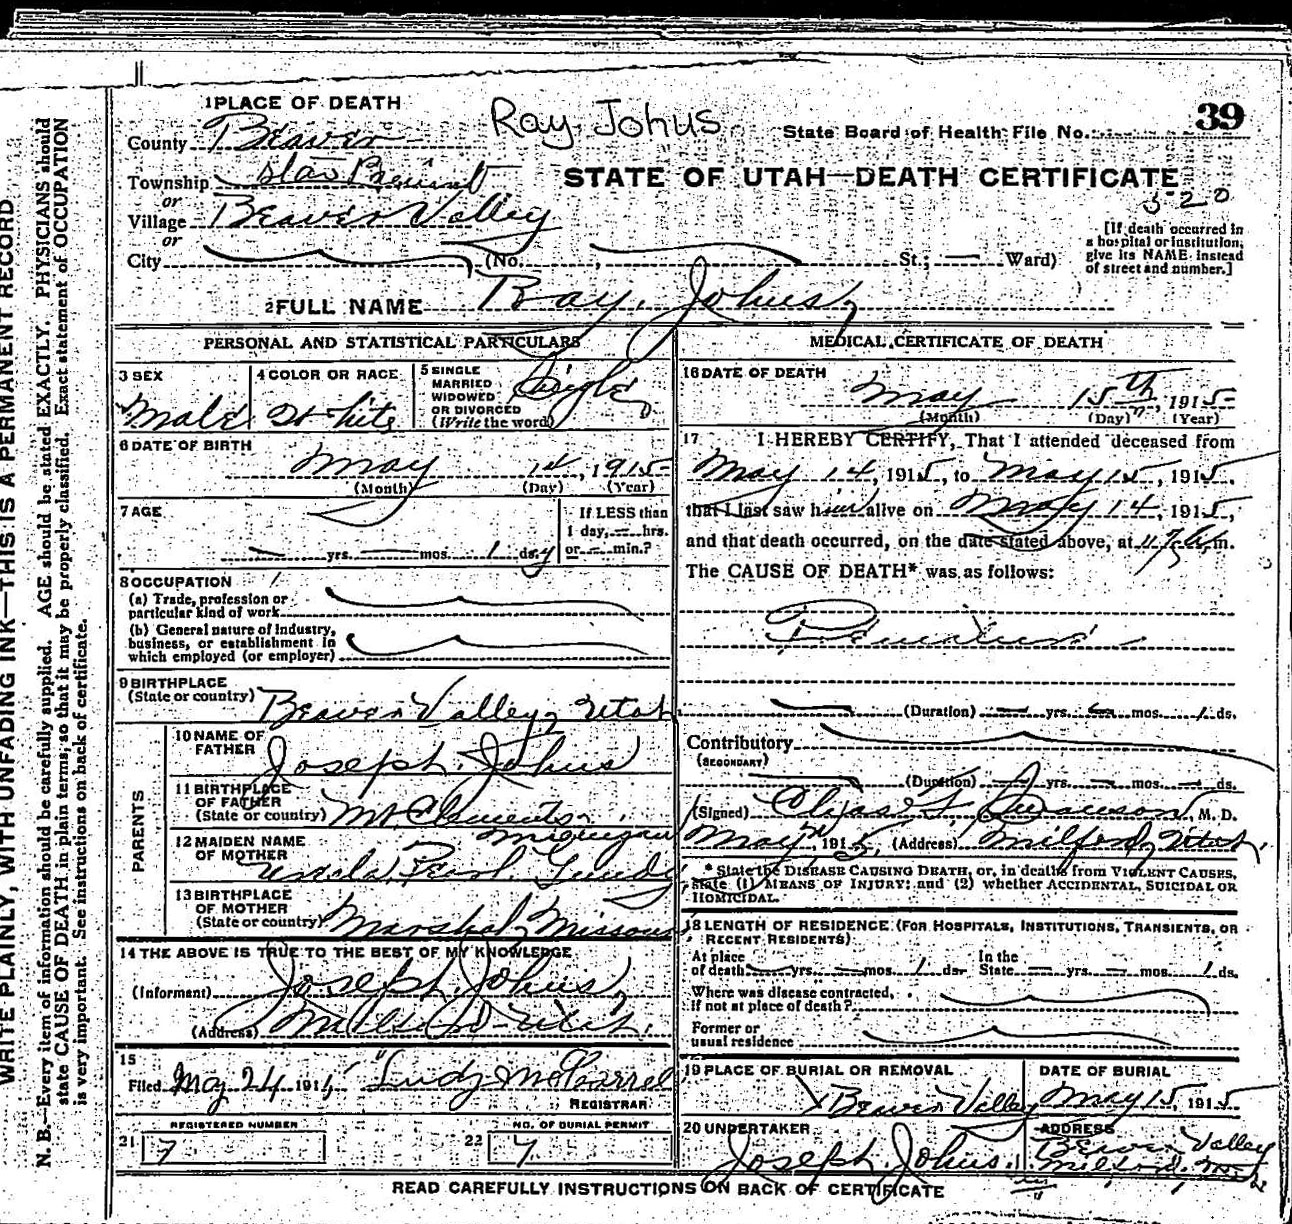 39
1 PLACE OF DEATH
Ray Johus
State Board of Health File No.
County Beaver
STATE OF UTAH—DEATH CERTIFICATE
Township Star
520
or
Village Beaver Valley
or
City (No. , St.; Ward)
[If death occurred in
a hospital or institution,
give its NAME instead
of street and number.]
2 FULL NAME Ray Johus
PERSONAL AND STATISTICAL PARTICULARS
3 SEX
Male
4 COLOR OR RACE
White
5 SINGLE
MARRIED
WIDOWED
OR DIVORCED
(Write the word)
Single
6 DATE OF BIRTH
May 14, 1915
(Month) (Day) (Year)
7 AGE
yrs. mos. 1 ds.
If LESS than
1 day, hrs.
or min.?
8 OCCUPATION
(a) Trade, profession or
particular kind of work
(b) General nature of Industry,
business, or establishment in
which employed (or employer)
9 BIRTHPLACE
(State or country) Beaver Valley, Utah
PARENTS
10 NAME OF
FATHER Joseph Johus
11 BIRTHPLACE
OF FATHER
(State or country) Mt Clements
Michigan
12 MAIDEN NAME
OF MOTHER Pearl
13 BIRTHPLACE
OF MOTHER
(State or country) Marshal, Missouri
14 THE ABOVE IS TRUE TO THE BEST OF MY KNOWLEDGE
(Informant) Joseph Johus,
(Address) Milford Utah.
15
Filed May 24 191
REGISTRAR
REGISTERED NUMBER
21 7
NO. OF BURIAL PERMIT
22 7
MEDICAL CERTIFICATE OF DEATH
16 DATE OF DEATH
May 15th, 1915
(Month) (Day) (Year)
17 I HEREBY CERTIFY, That I attended deceased from
May 14, 1915, to May 15, 1915.
that I last saw him alive on May 14, 1915,
and that death occurred, on the date stated above, at 11 m.
The CAUSE OF DEATH* was as follows:
(Duration) yrs. mos. 1 ds.
Contributory
(SECONDARY)
(Duration) yrs. mos. ds.
(Signed) Chas M. D.
May , 1915, (Address) Milford, Utah.
* State the DISEASE CAUSING DEATH, or, in deaths from VIOLENT CAUSES,
state (1) MEANS OF INJURY; and (2) whether ACCIDENTAL, SUICIDAL OR
HOMICIDAL.
18 LENGTH OF RESIDENCE (FOR HOSPITALS, INSTITUTIONS, TRANSIENTS, OR
RECENT RESIDENTS)
At place
of death yrs. mos. 1 ds.
In the
State yrs. mos. 1 ds.
Where was disease contracted,
if not at place of death?
Former or
usual residence
19 PLACE OF BURIAL OR REMOVAL
Beaver Valley
DATE OF BURIAL
May 15, 1915
20 UNDERTAKER
Joseph Johus
ADDRESS
Beaver Valley
Milford, Utah
READ CAREFULLY INSTRUCTIONS ON BACK OF CERTIFICATE
WRITE PLAINLY, WITH UNFADING INK—THIS IS A PERMANENT RECORD
N. B.—Every item of information should be carefully supplied. AGE should be stated EXACTLY. PHYSICIANS should
state CAUSE OF DEATH in plain terms, so that it may be properly classified. Exact statement of OCCUPATION
is very important. See instructions on back of certificate.